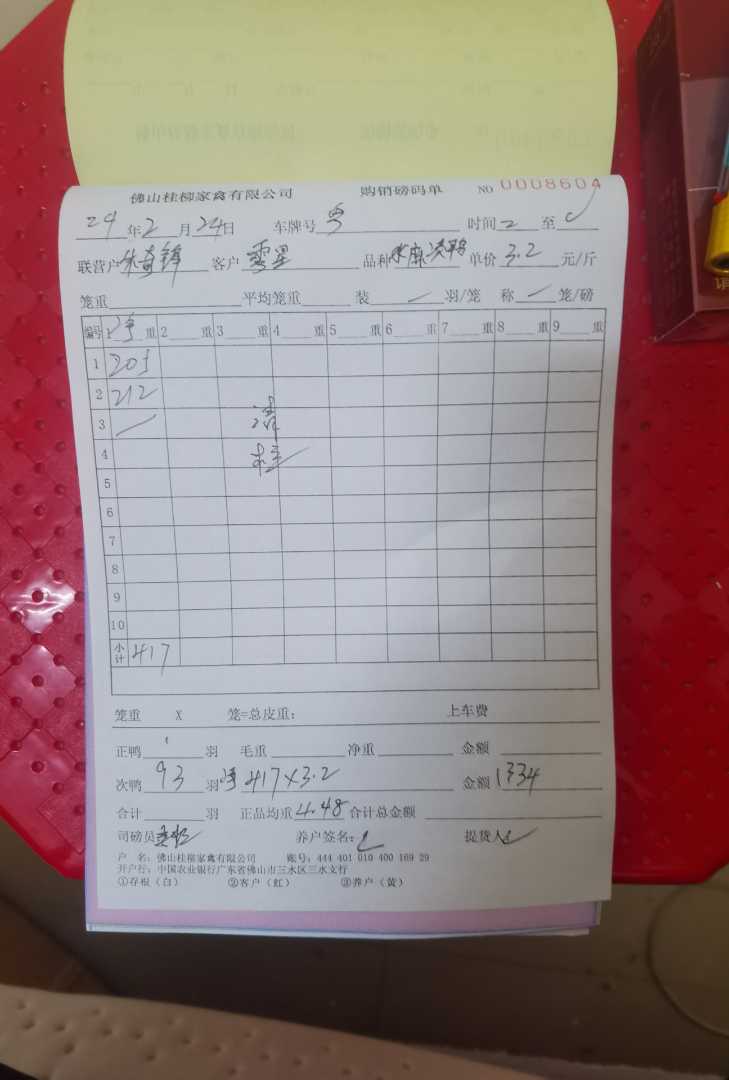 佛山桂柳家禽有限公司 购销磅码单 NO 0008604
24年2月24日 车牌号 粤 时间 至
联营户 朱奇锋 客户 雪星 品种 单价 3.2 元/斤
笼重 平均笼重 装 一 羽/笼 称 一 笼/磅
编号 1 净 重 2 重 3 重 4 重 5 重 6 重 7 重 8 重 9 重
1 205
2 212
3 清
4
5
6
7
8
9
10
小计 417
笼重 X 笼=总皮重: 上车费
正鸭 羽 毛重 净重 金额
次鸭 93 羽 净 417×3.2 金额 1334
合计 羽 正品均重 4.48 合计总金额
司磅员 养户签名: 提货人
户 名: 佛山桂柳家禽有限公司 账号: 444 401 010 400 169 29
开户行: 中国农业银行广东省佛山市三水区三水支行
①存根(白) ②客户(红) ③养户(黄)